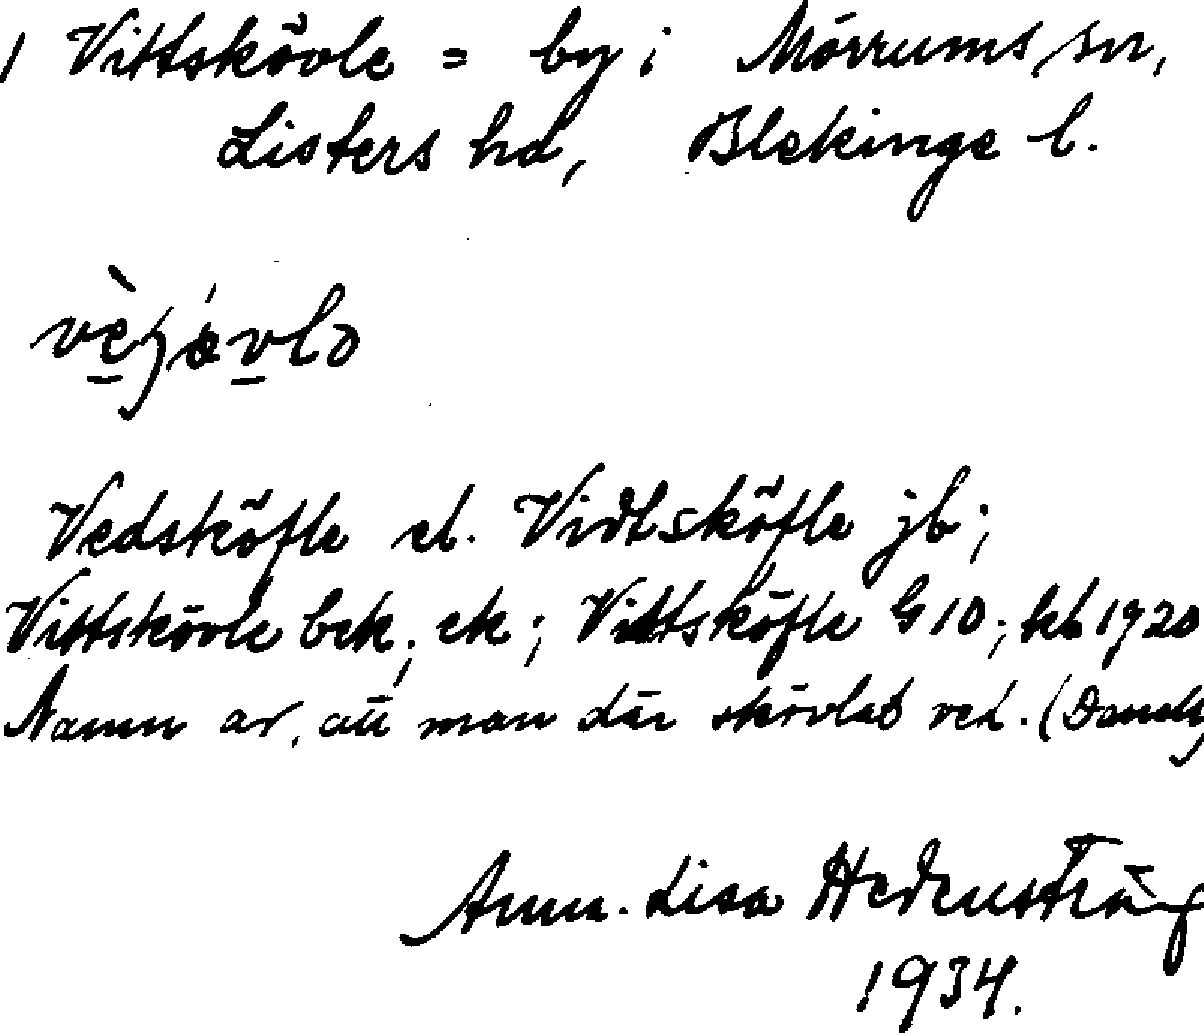 1 Vittskövle = by i Mörrums sn,
Listers hd, Blekinge l.
Vedsköfle el. Vidtsköfle jb;
Vittskövle bek; ek; Vittsköfle G 10; kb 1920
Namn av, att man där skövlat ved. (Dansk
Ann-Lisa Hedenström
1934.